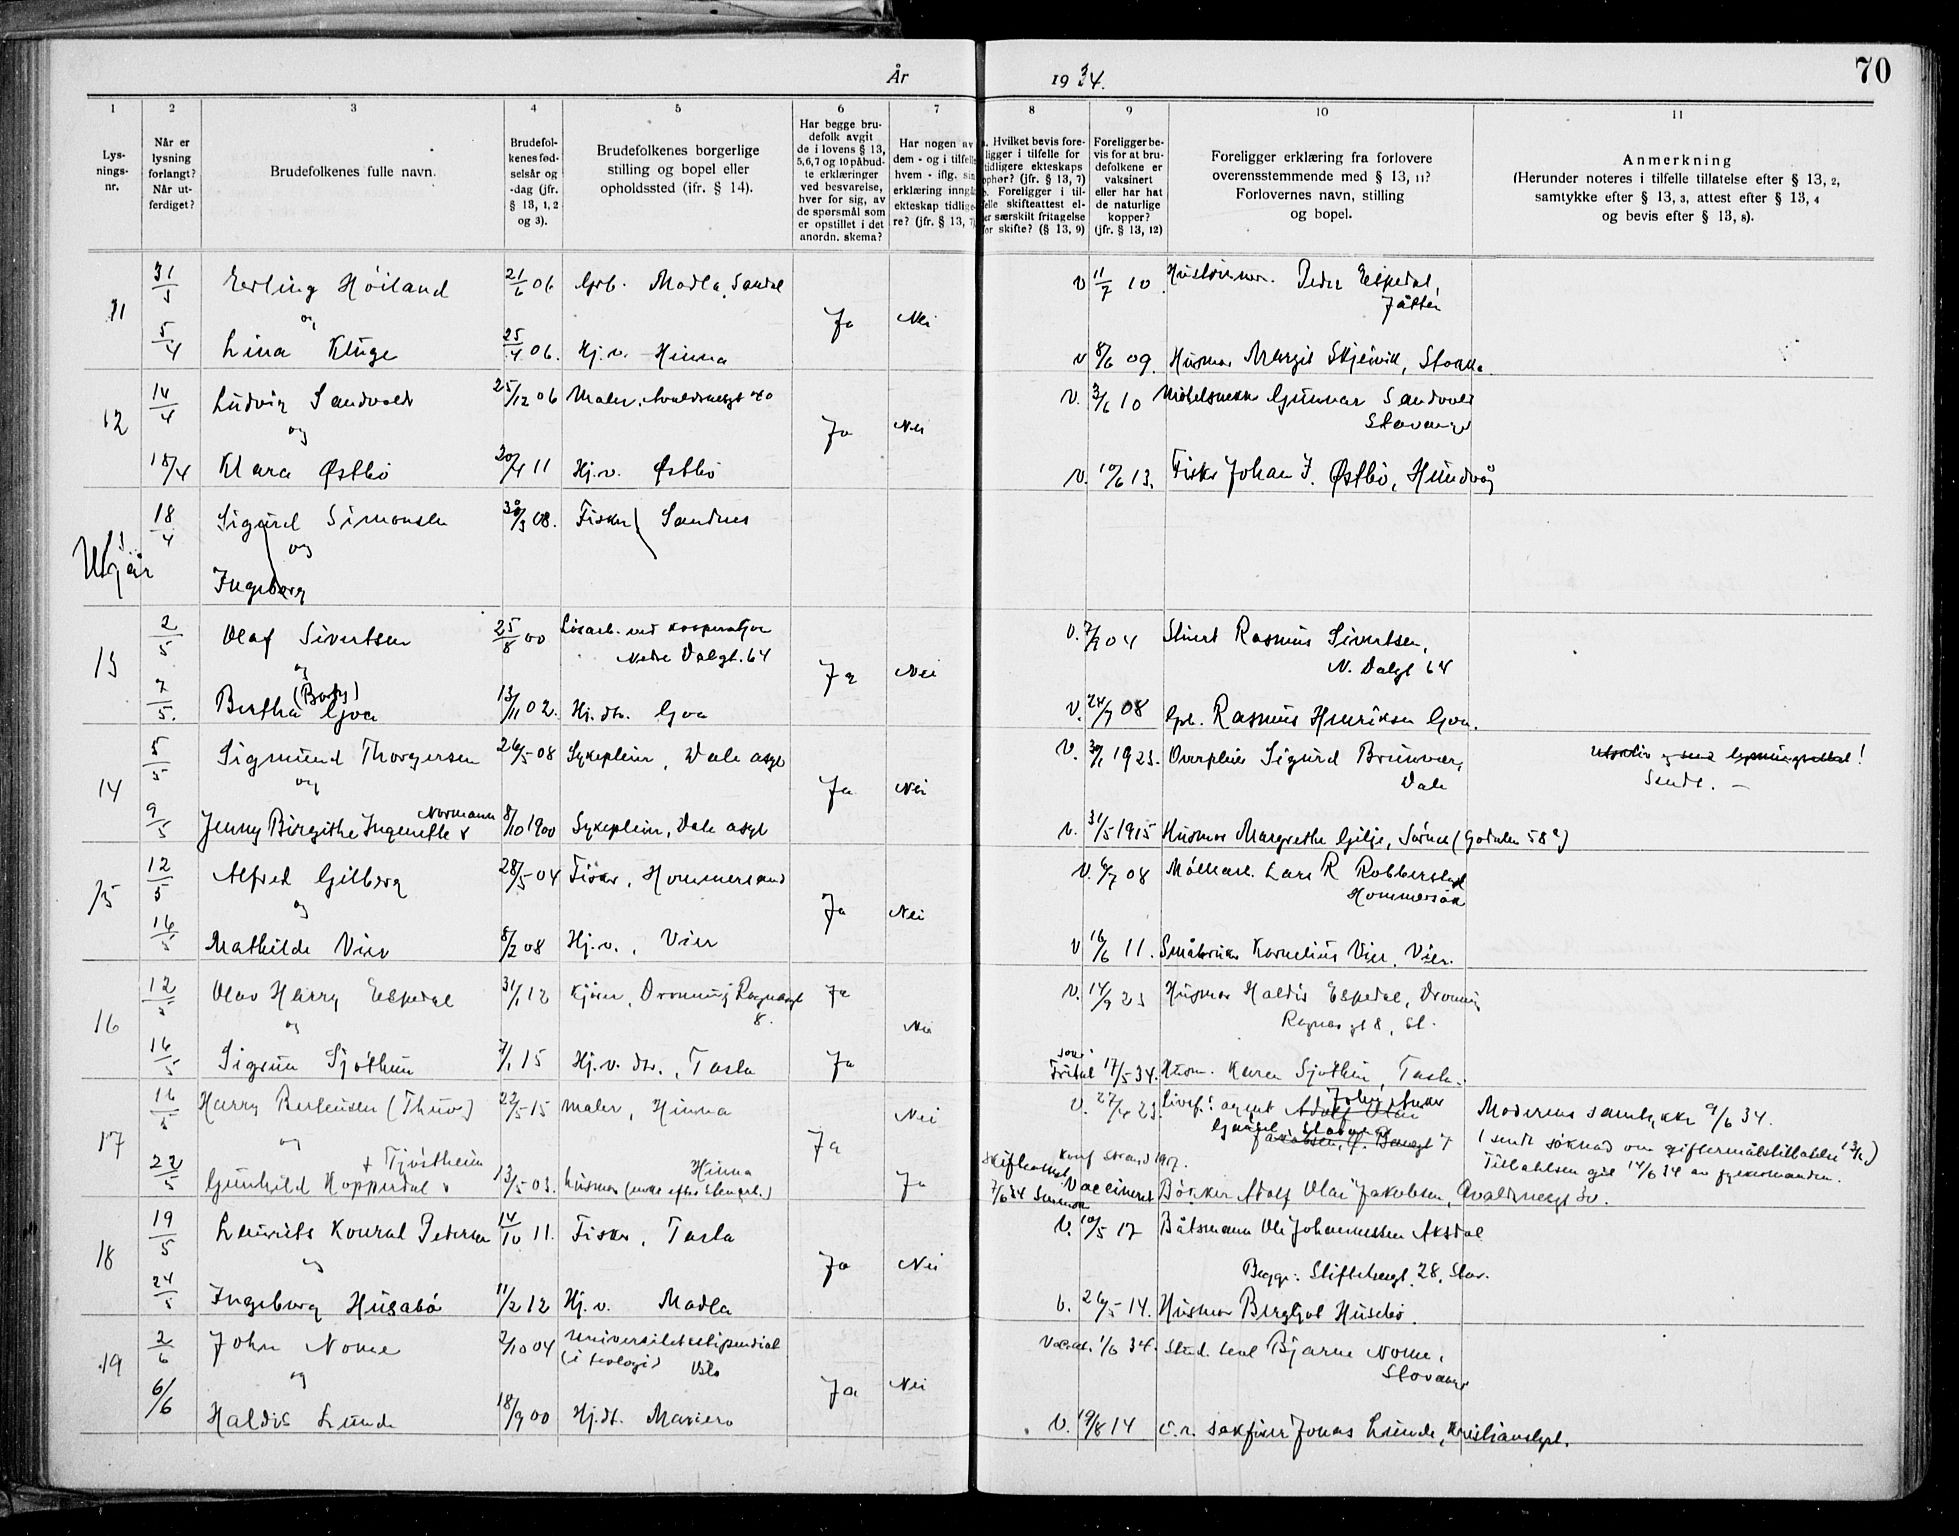 År 1934.
70
1 2 3 4 5 6 7 8 9 10 11
Lys-
nings-
nr.
Når er
lysning
forlangt?
Når ut-
ferdiget?
Brudefolkenes fulle navn.
Brudefol-
kenes fød-
selsår og
-dag (jfr.
§ 13, 1, 2
og 3).
Brudefolkenes borgerlige
stilling og bopel eller
opholdssted (ifr. § 14).
Har begge bru-
defolk avgit
de i lovens § 13,
5,6,7 og 10 påbud-
te erklæringer
ved besvarelse,
hver for sig, av
de spørsmål som
er opstillet i det
anordn. skema?
Har nogen av
dem - og i tilfelle
hvem - iflg. sin
erklæring inngå
ekteskap tidlige-
re? (jfr. § 13, 7)
a. Hvilket bevis fore-
ligger i tilfelle for
tidligere ekteskaps
ophør? (jfr. § 13, 7)
b. Foreligger i til-
felle skifteattest el-
ler særskilt fritagelse
for skifte? (§ 13, 9)
Foreligger be-
vis for at bru-
defolkene er
vaksinert
eller har hat
de naturlige
kopper?
(jfr. § 13, 12)
Foreligger erklæring fra forlovere
overensstemmende med § 13, 11?
Forlovernes navn, stilling
og bopel.
Anmerkning
(Herunder noteres i tilfelle tillatelse efter § 13, 2,
samtykke efter § 13, 3, attest efter § 13, 4
og bevis efter § 13, 8).
11
31/3 Erling Höiland 21/6 06 Grb. Madla, Sandal v 11/7 10 Peder Espedal,
Jåtten
og Ja Nei
5/4 Lina Kluge 25/4 06. Hj.v. Hinna v 8/6 09. Husmor Margit Skjeivik, Stokka.
12
14/4 Ludvig Sandvold 25/12 06 Maler, Avaldsnesgt 40 V. 3/6 10 Möbelsnekker Gunnar Sandvold
Stavanger
og Ja Nei
18/4 Klara Østbö 20/4 11 Hj.v. Østbö V. 10/6 13. Fisker Johan J. Østbö, Hundvåg
13
Utgår
18/4 Sigurd Simonsen 30/3 08. Fisker Sandnes
og
Ingeborg
13
2/5 Olaf Sivertsen 25/8 00 Lösarb. ved
Nedre Dalgt. 64 V. 7/7 04 Rasmus Sivertsen,
N. Dalgt 64
og Ja Nei
7/5. Bertha (Boty) Goa 13/11 02. Hj.dtr. Goa V. 24/7 08 Grb. Rasmus Henriksen Goa.
14
5/5 Sigmund Thorgersen 26/5 08 Sykepleier, Dale asyl V. 30/1 1923. Overpleier Sigurd Brunvær,
Dale
og med lysningsattest!
Sendt. —
og Ja Nei
9/5 Jenny Birgithe Ingenette Normann 8/10 1900 Sykepleier, Dale asyl V. 31/5 1915 Husmor Margrethe Gilje, (Godalen 58a)
15
12/5 Alfred Gilberg 28/5 04 Fisker, Hommersand V. 6/7 08 Lars R Robberstad
Hommersåk
og Ja Nei
16/5 Mathilde Vier 8/2 08 Hj.v., Vier V 16/6 11. Småbruker Kornelius Vier, Vier.
16
12/5 Olav Harry Espedal 31/1 12 Kjörer, Dronning Ragnasgt
8. Ja V. 14/9 23 Husmor Haldis Espedal, Dronning
Ragnasgt 8, St.
og Nei
16/5 Sigrun Sjöthun 7/1 15 Hj.v. dtr., Tasta Ja 17/5 34. Husm. Karen Sjöthun, Tasta.
17
16/5 Harry Berhensen (Thuv) 22/5 15 Maler, Hinna Nei V. 27/4 23. Livsf. agent
Moderens samtykke 9/6 34.
Stavanger
og Ja
(sendt söknad om giftermålstillatelse 13/6)
Tillatelsen git 14/6 34 av fylkesmannen.
22/5 Gunhild Kopperdal Tjöstheim 13/5 03. Husmor (enke efter Stenarb.) Hinna Ja Skifteattest 7/6 34 Konf. Vaccineret Böcker Adolf Olai Jakobsen, Avaldsnesgt
18
19/5 Laurits Konrad Pedersen 14/10 11. Fisker, Tasta V. 10/5 17 Båtsmann Ole Johannessen Aksdal
og Ja Nei Begge: Stiftelsesgt. 28, Stav.
24/5 Ingeborg Husabö 11/2 12 Hj.v. Madla V. 26/5 14. Husmor Bergljot Husebö.
19
2/6 John Nome 2/10 04 Universitetsstipendiat
(i teologi) Oslo Vacc.at. 1/6 34. Stud. teol Bjarne Nome,
Stavanger
og Ja Nei
6/6 Haldis Lunde 18/9 00 Hj.dt. Mariero V. 19/8 14 o.r. sakfører Jonas Lunde, Kristianslyst.